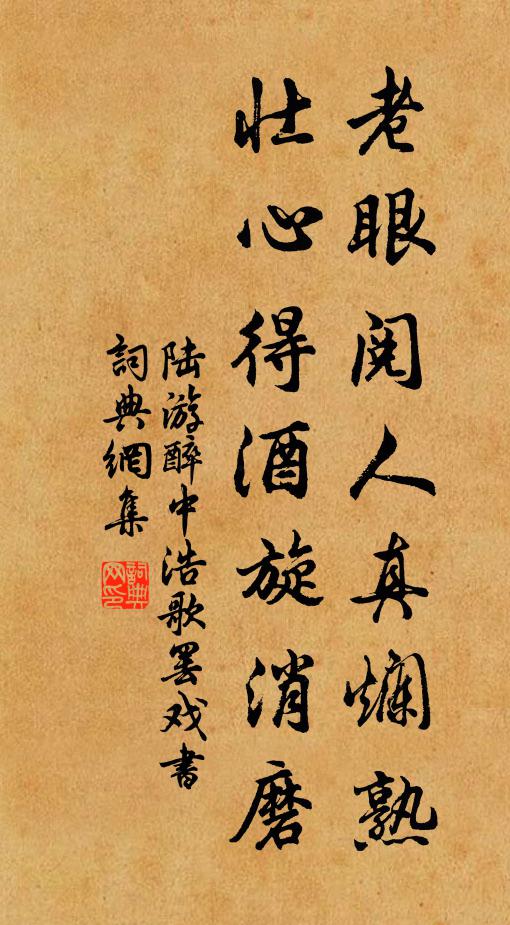 老眼阅人真爛熟
壮心得酒旋消磨
陆游醉中浩歌罢戏書
詞典網集
詞典網印